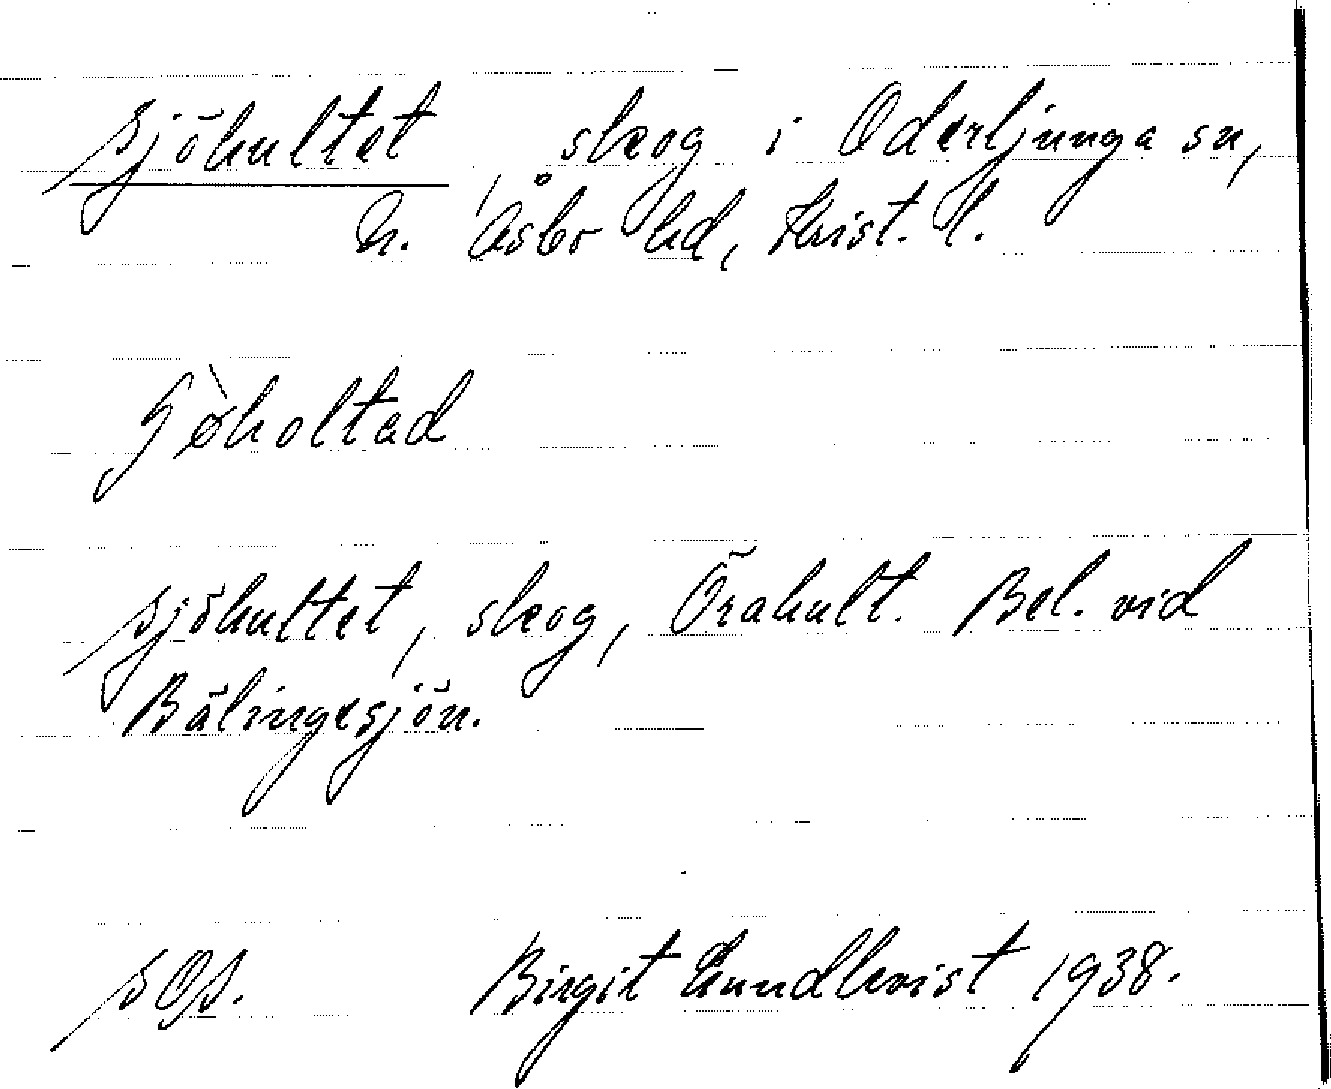 Sjöhultet, skog i Oderljunga sn,
N. Åsbo hd, Krist. l.
Sjöhultet, skog, Örahult. Bel. vid
Bälingesjön.
SOS. Birgit Lundkvist 1938.